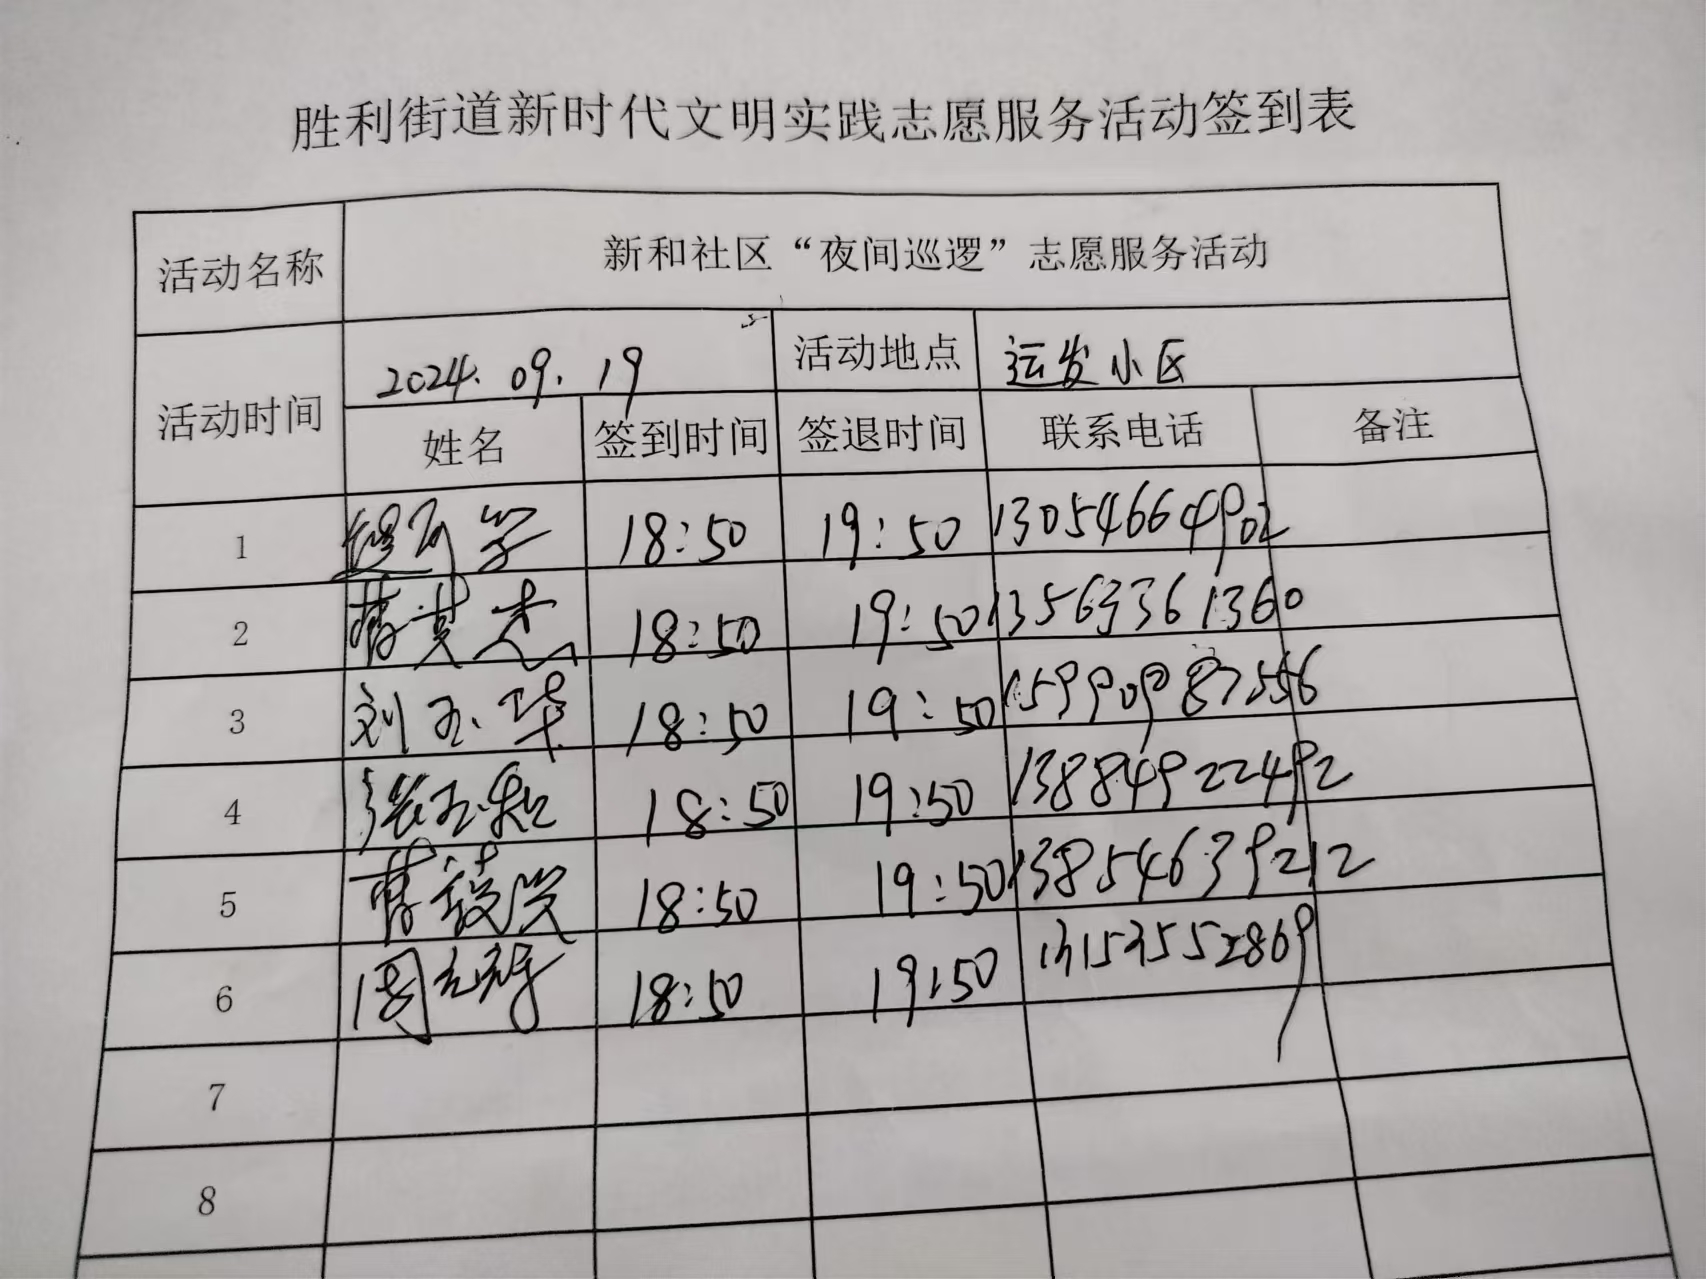 胜利街道新时代文明实践志愿服务活动签到表
活动名称 新和社区“夜间巡逻”志愿服务活动
活动时间 2024.09.19 活动地点 运发小区
姓名 签到时间 签退时间 联系电话 备注
1 18:50 19:50 13054664902
2 18:50 19:50 13563361360
3 刘玉华 18:50 19:50 15990987556
4 张玉 18:50 19:50 13884922492
5 18:50 19:50 13854639212
6 周 18:50 19:50 13153552869
7
8